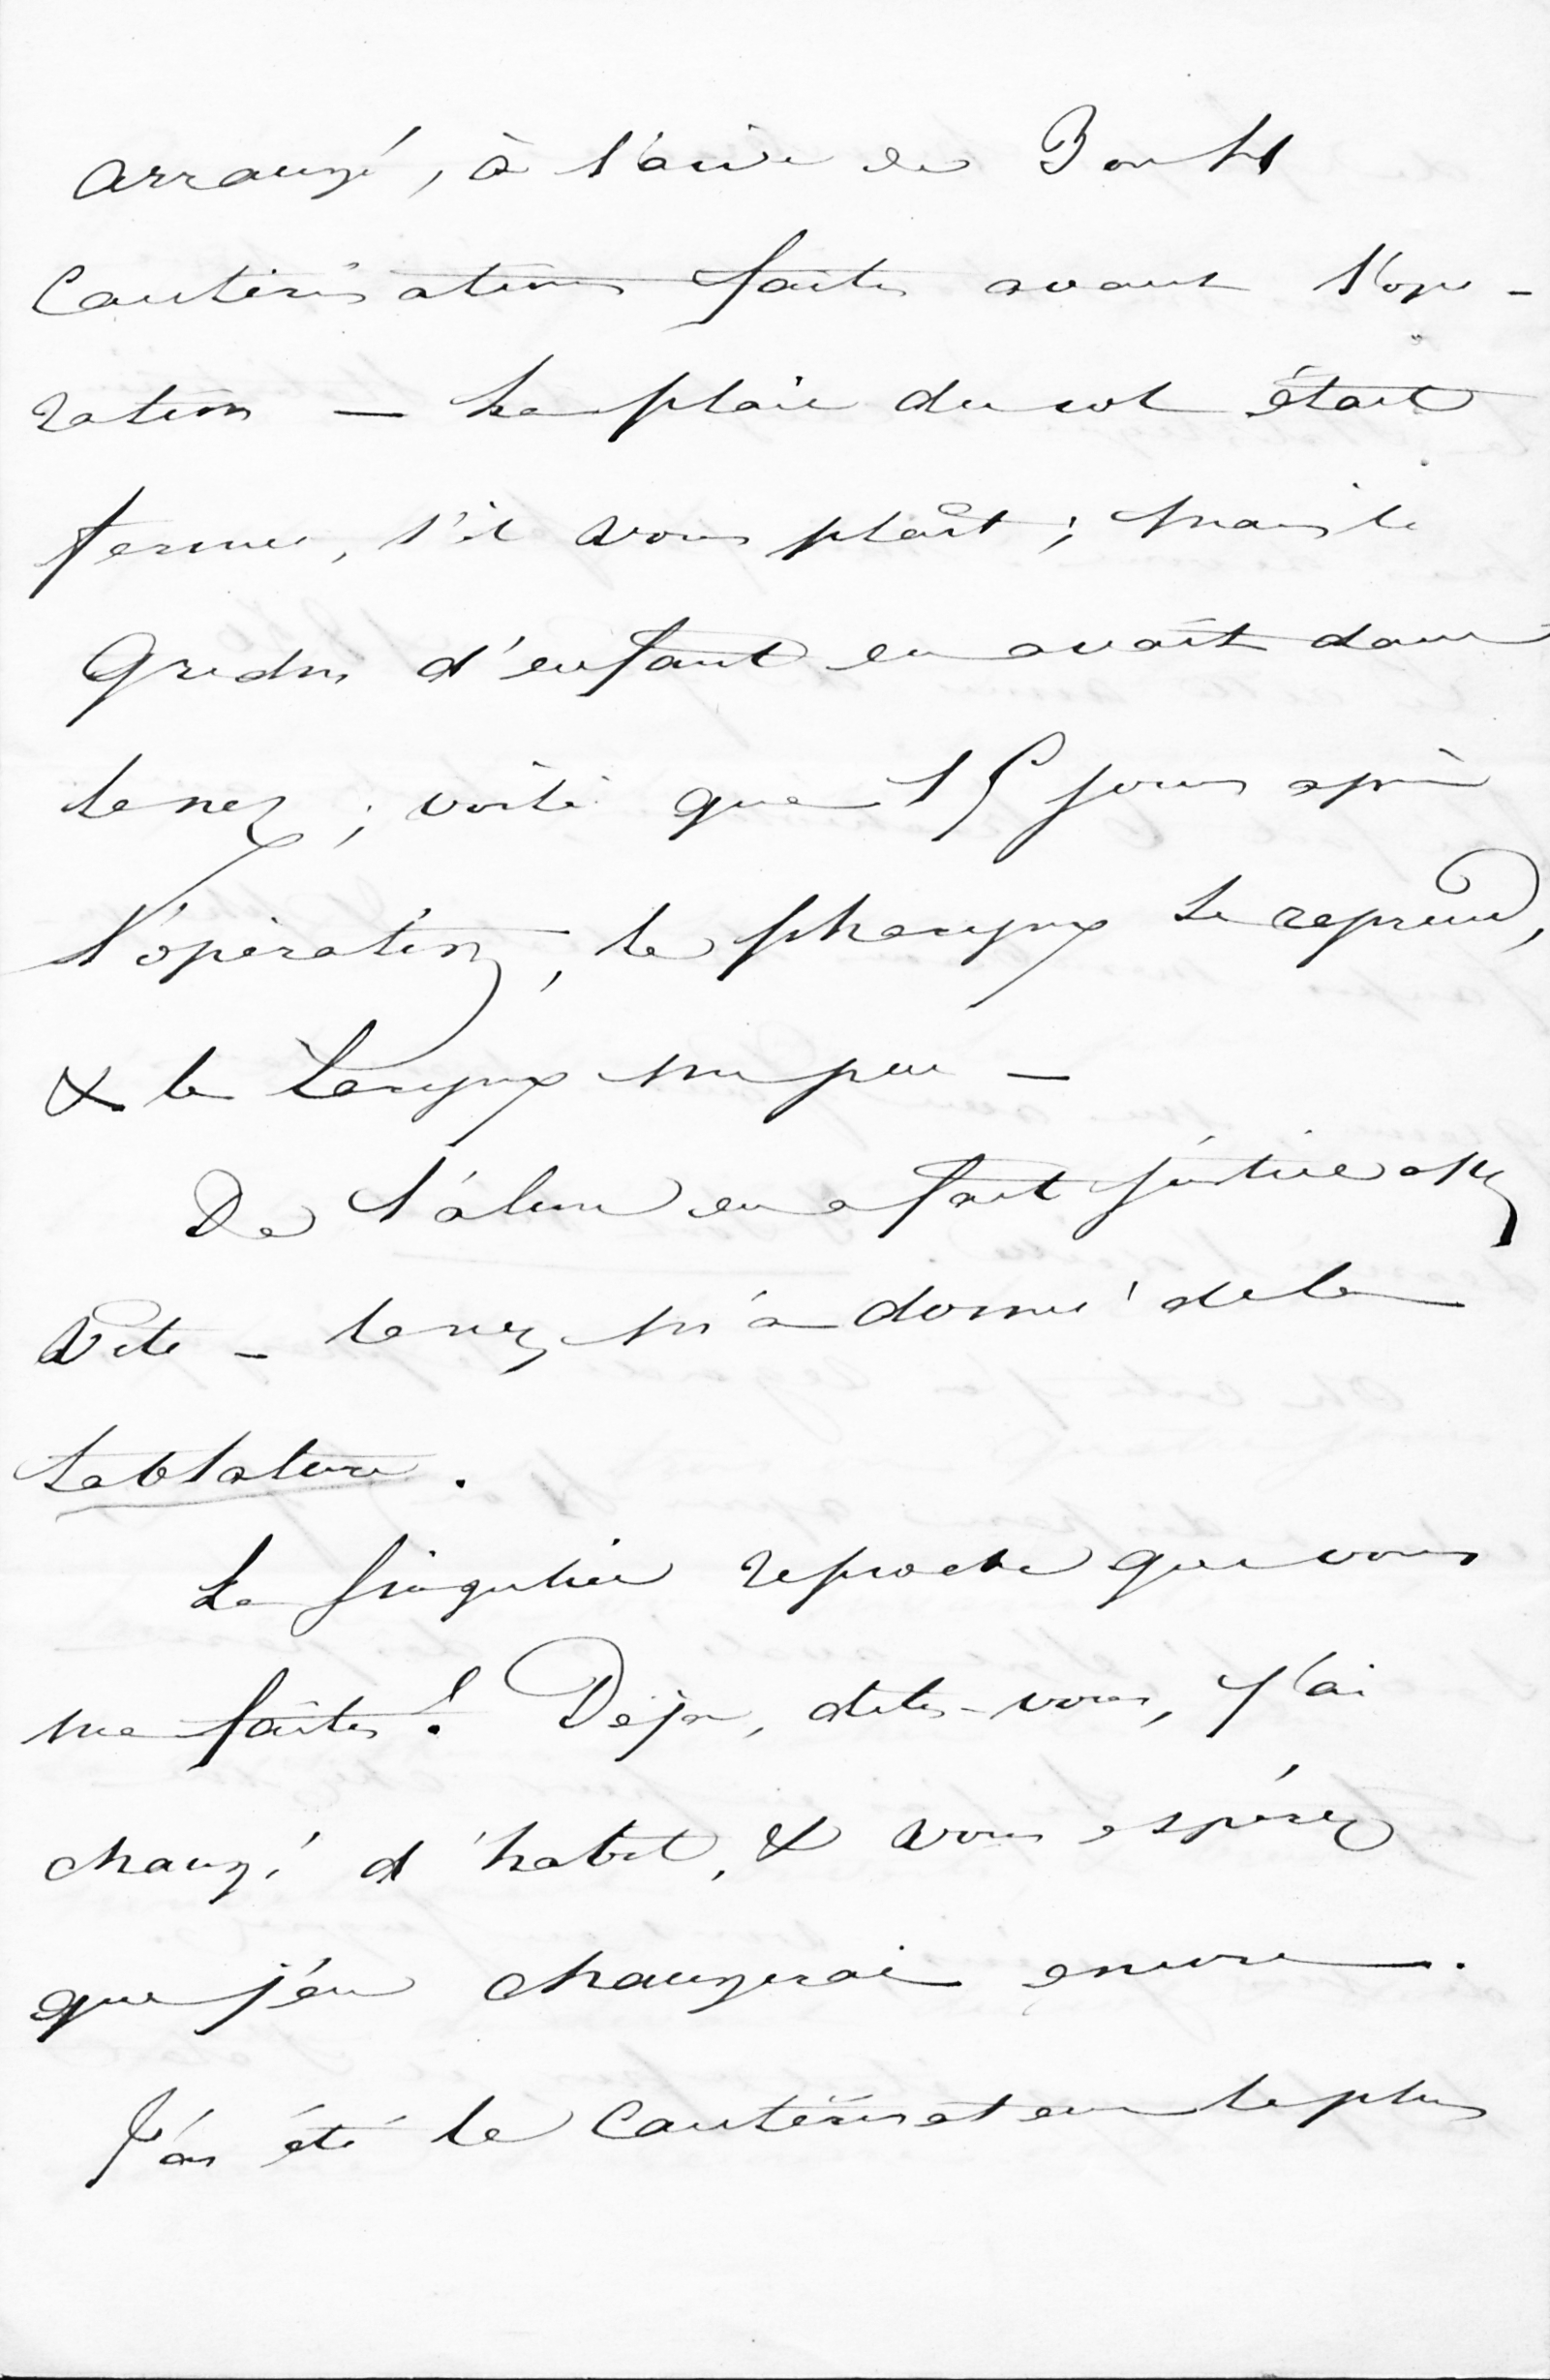 arrangé, à l'aide de
Cautérisations faites avant l'opé-
ration — La plaie du col était
fermée, s'il vous plaît ; mais le
Gredin d'enfant en avait dans
le nez ; voilà que 15 jours après
l'opération, le pharynx se reprend,
& le Larynx un peu —
De l'alun en a fait justice assez
Vite — le nez m'a donné de la
tablature.
Le singulier reproche que vous
me faites ! Déjà, dites-vous, j'ai
changé d'habit, & vous espérez
que j'en changerai encore.
J'ai été le Cautérisateur le plus